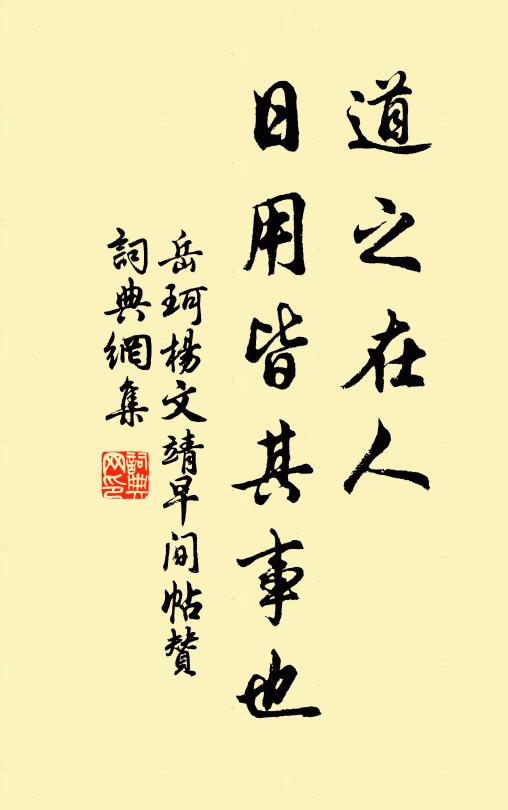 道之在人
日用皆其事也
岳珂楊文靖早間帖贊
詞典網集
詞典网印